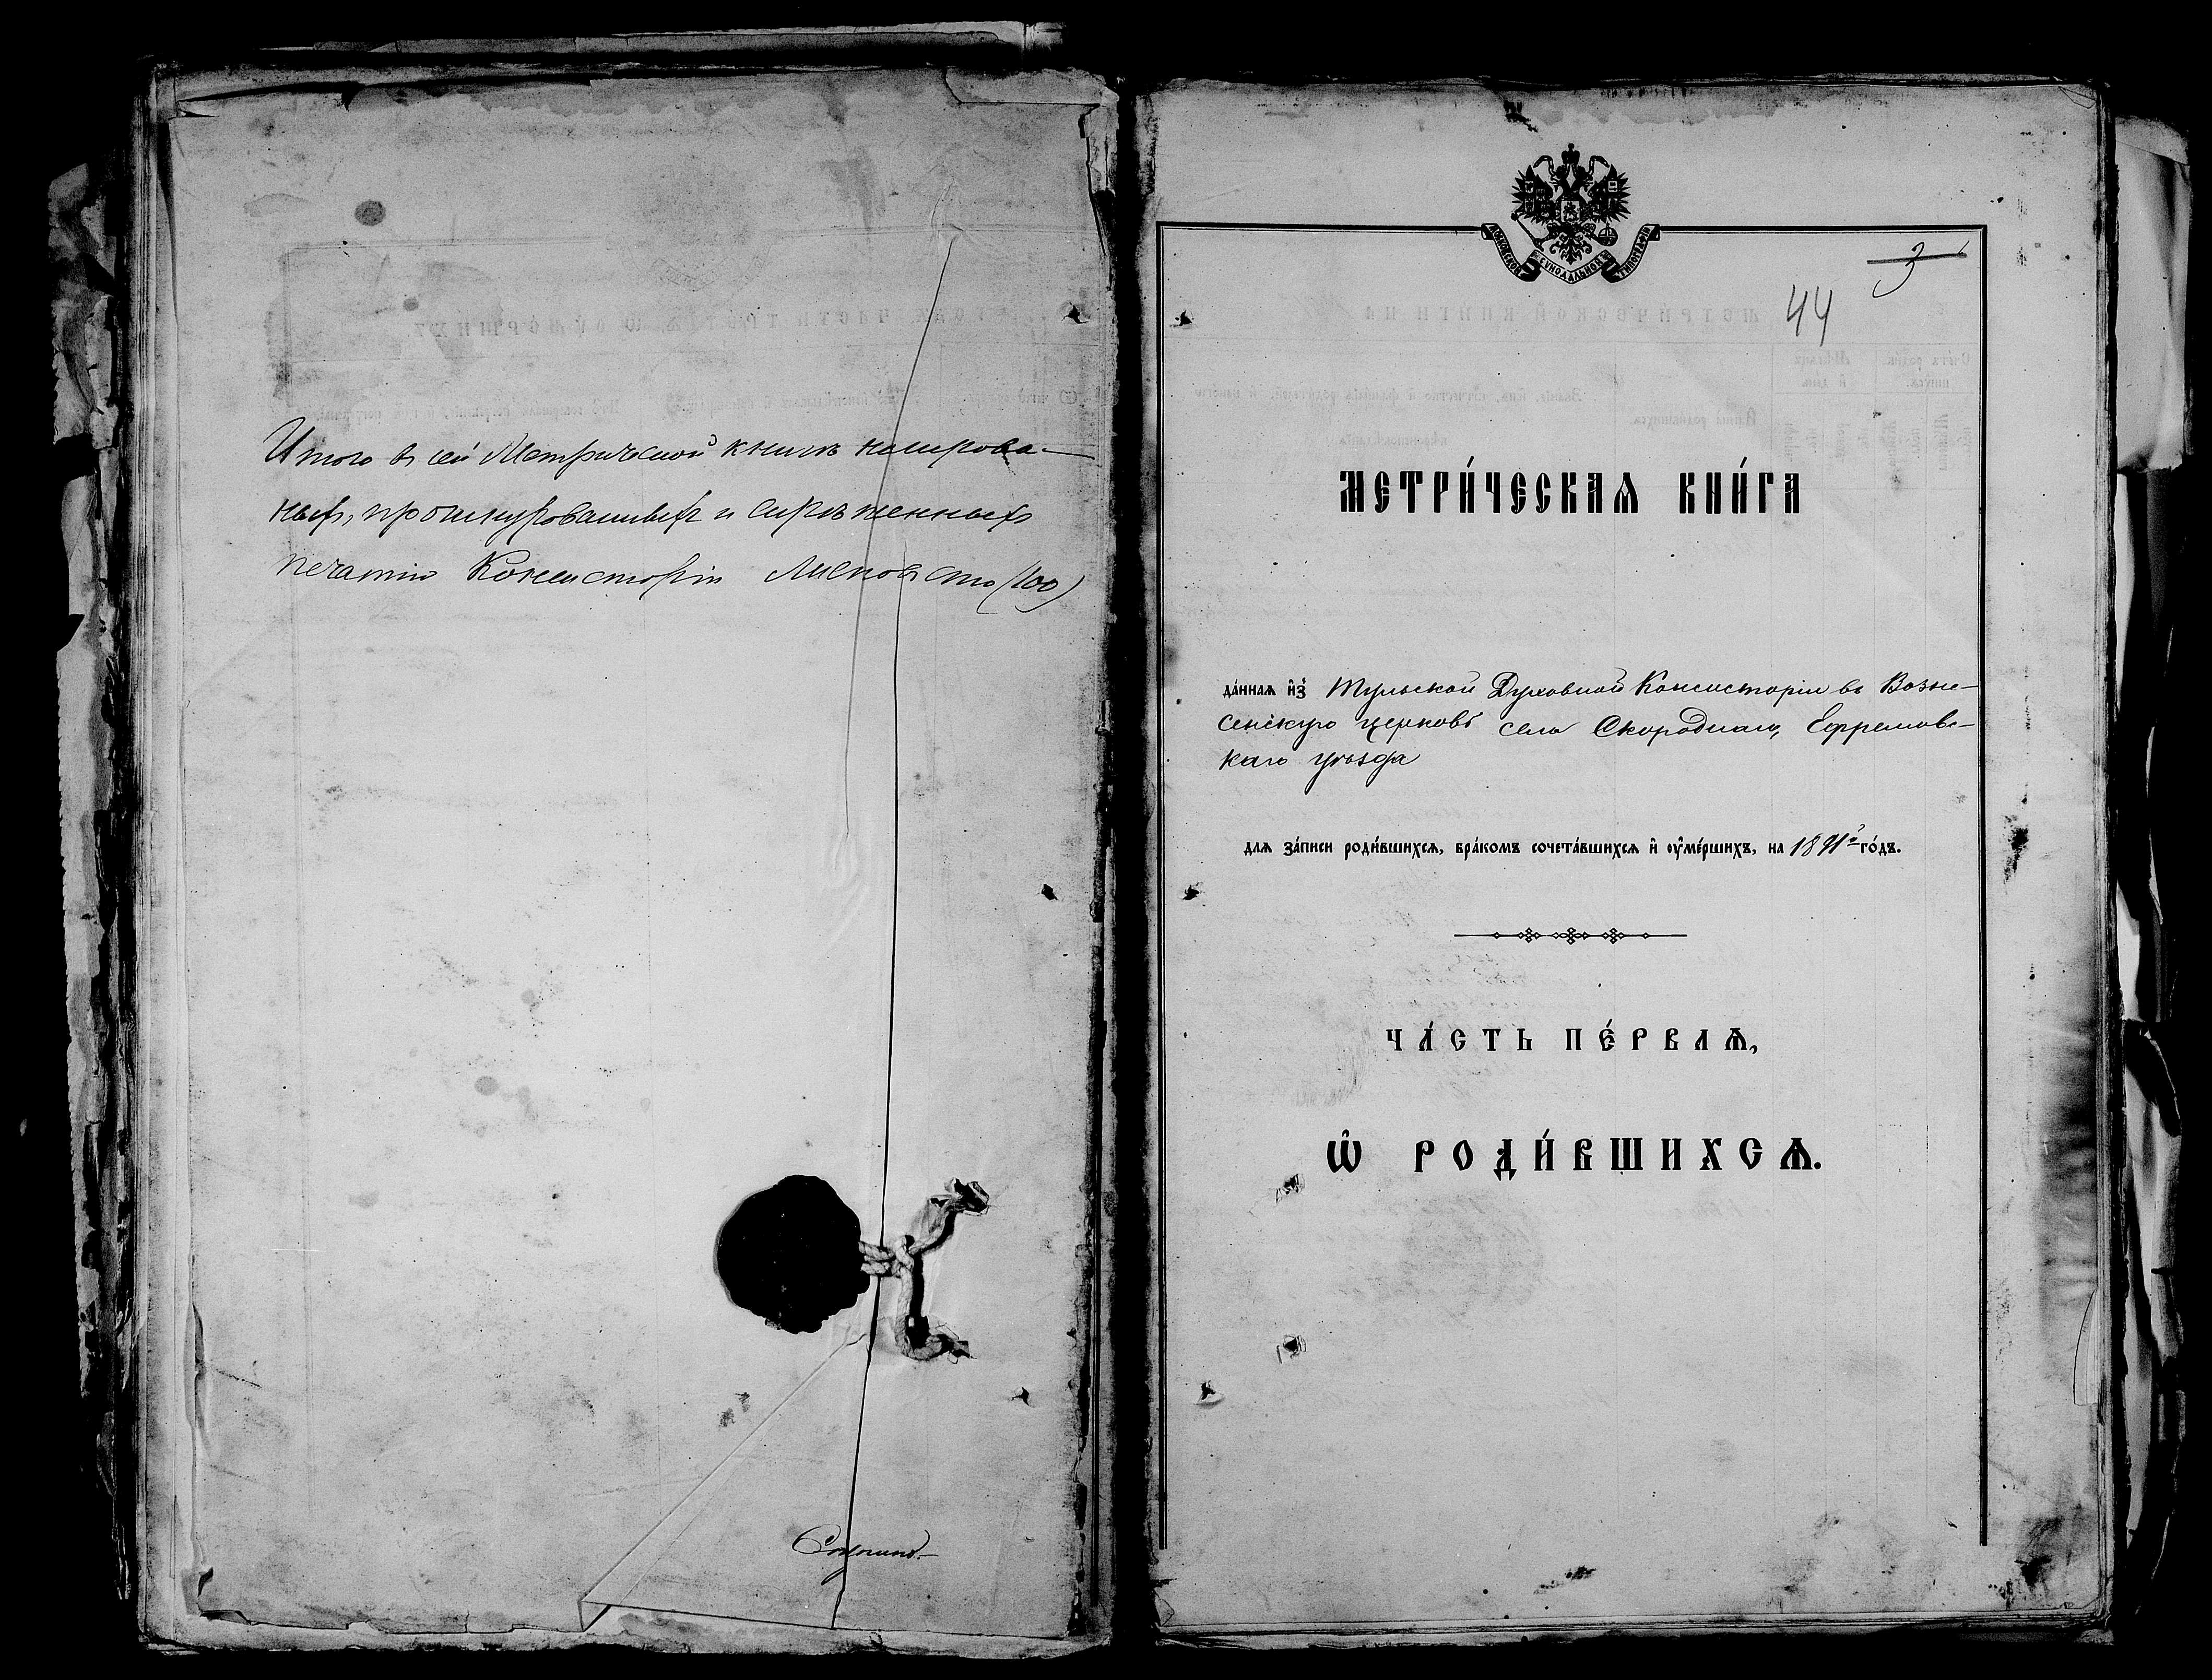 Итого въ сей Метрической книгѣ нумерова-
ныхъ, прошнурованныхъ и скрѣпленныхъ
печатію Консисторіи листовъ сто (100)
МОСКОВСКОЙ СѴНОДАЛЬНОЙ ТИПОГРАФІИ
3
44
МЕТРИ́ЧЕСКАѦ КНИ́ГА
да́ннаѧ и҆з̾ Тульской Духовной Консисторіи въ Возне-
сенскую церковь села Скороднаго, Ефремовс-
каго уѣзда
длѧ за́писи роди́вшихсѧ, бра́комъ сочета́вшихсѧ и҆ ᲂу҆ме́ршихъ, на 1891й го́дъ.
ЧА́СТЬ ПЕ́РВАѦ,
Ѽ РОДИ́ВШИХСѦ.